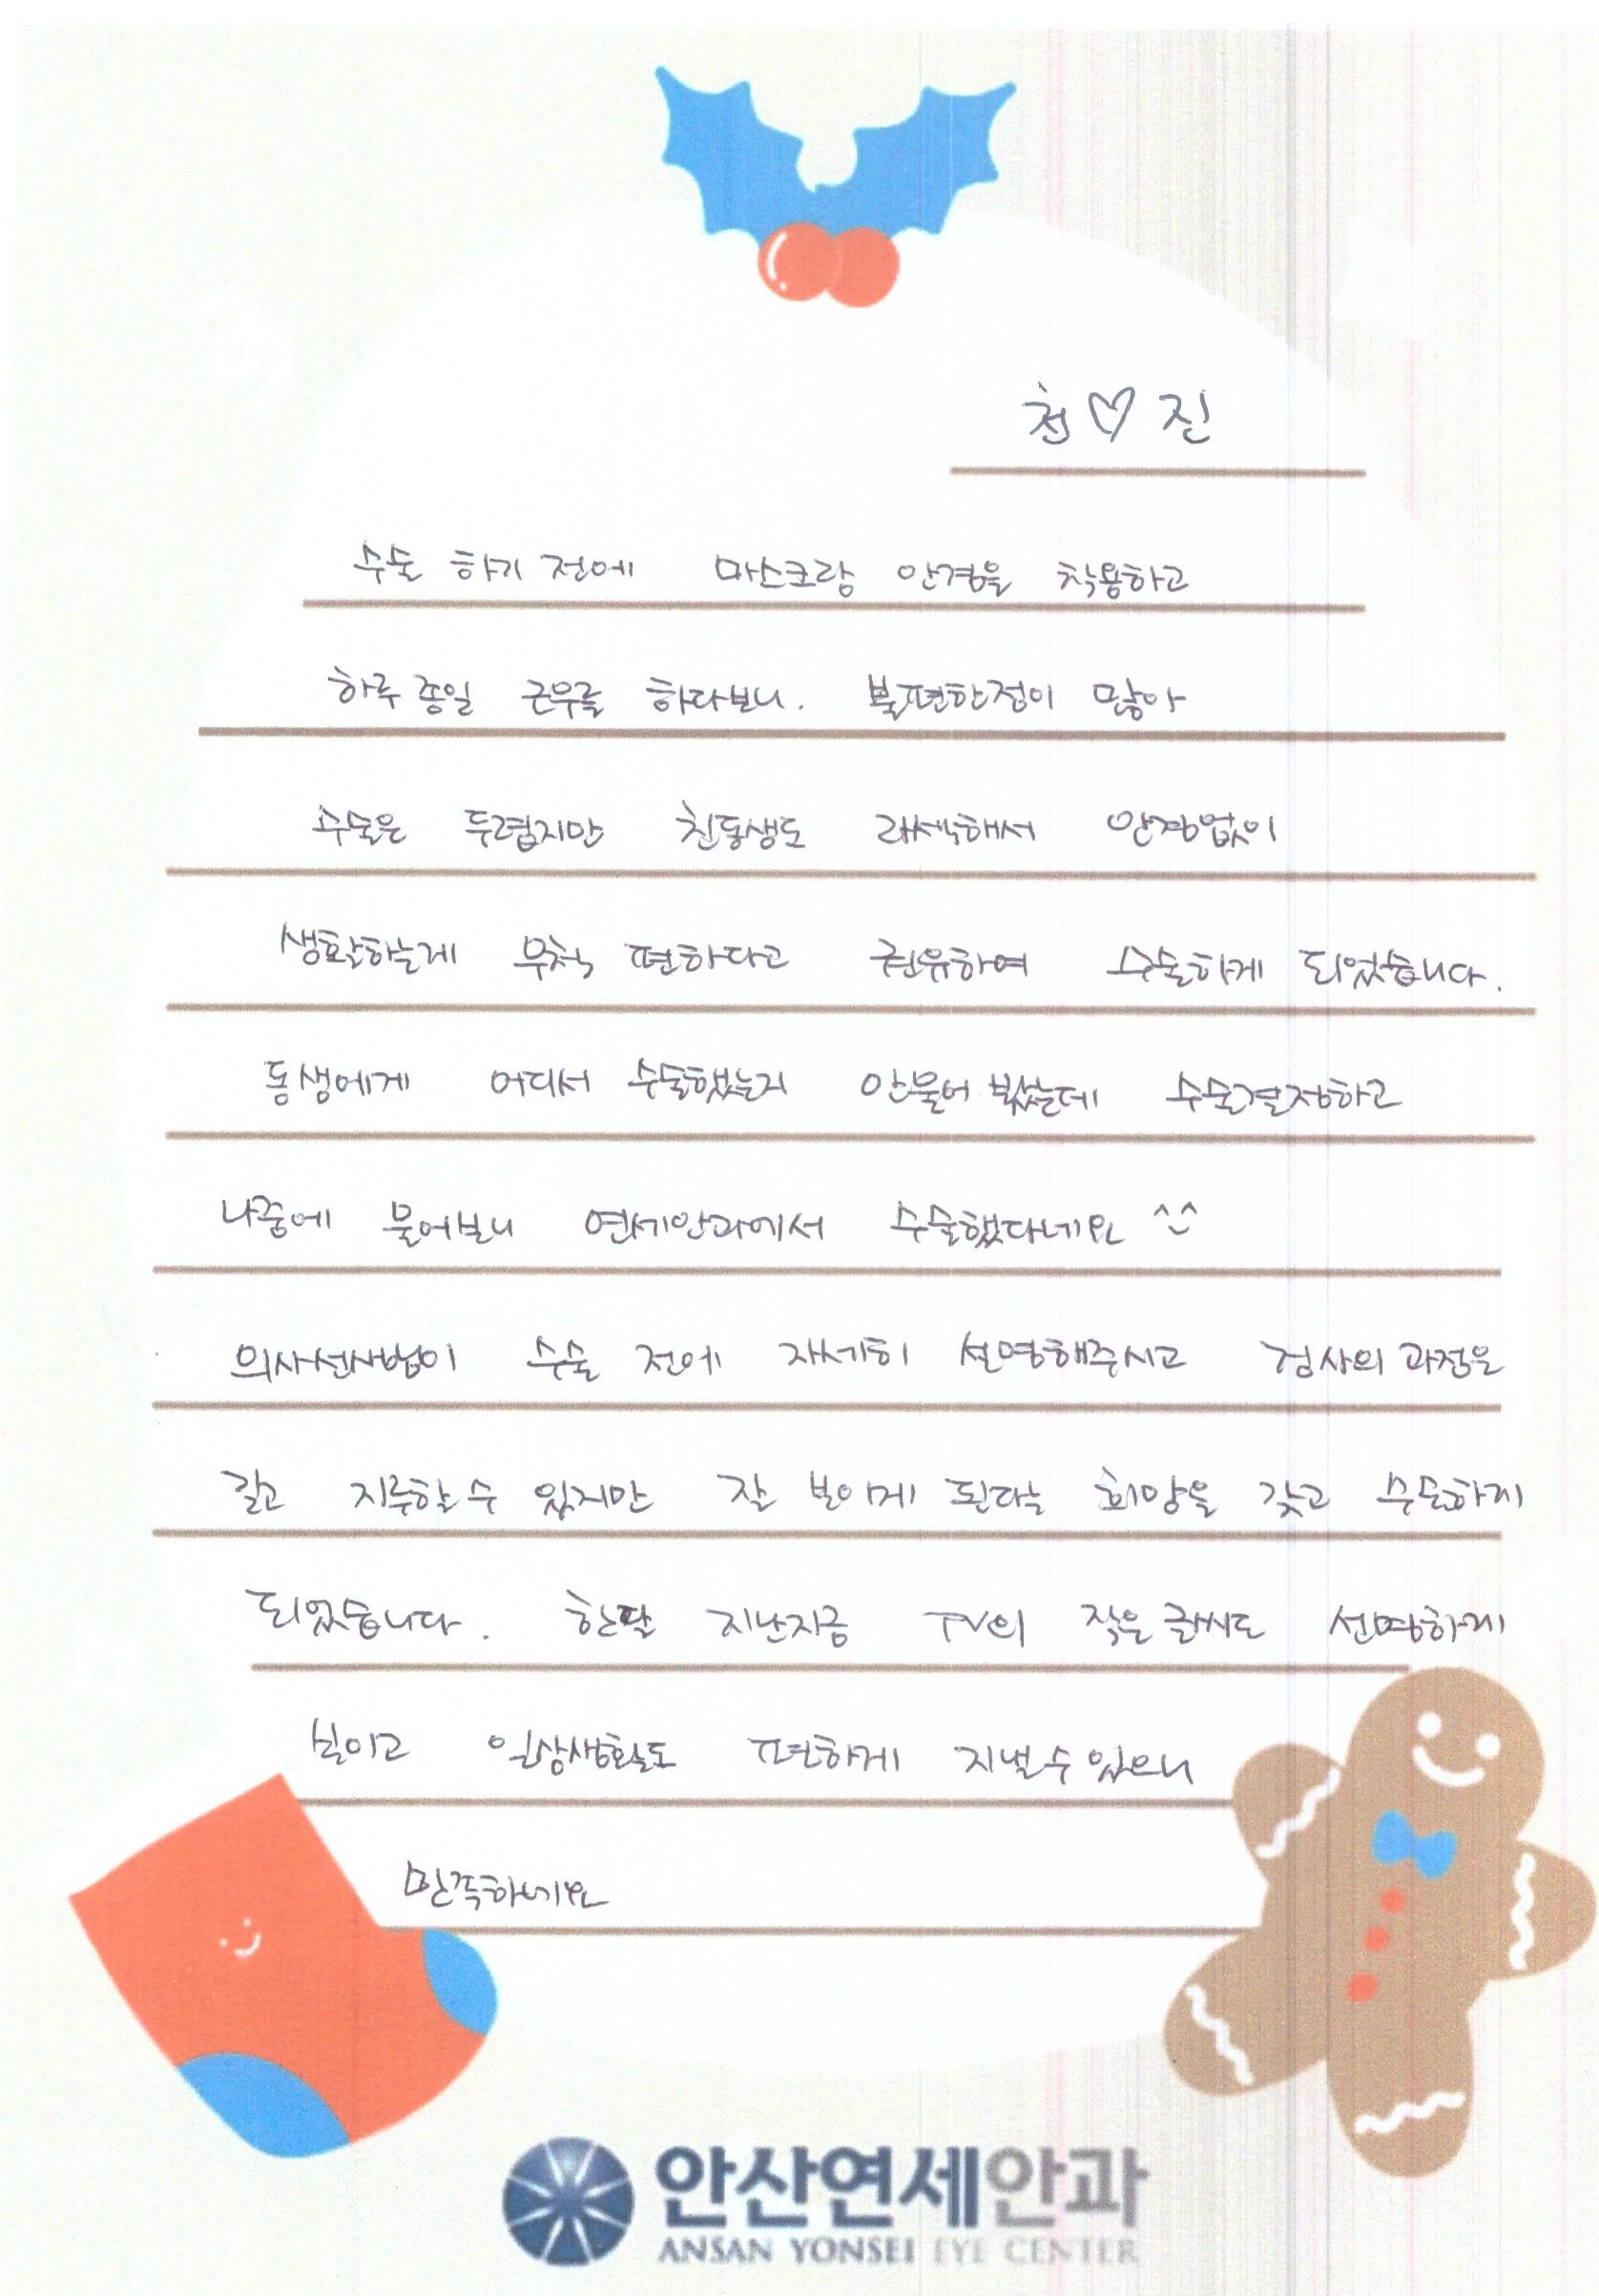 천♡진
수술 하기 전에 마스크랑 안경을 착용하고
하루 종일 근무를 하다보니. 불편한점이 많아
수술은 두렵지만 친동생도 라섹해서 안경없이
생활하는게 무척 편하다고 권유하여 수술하게 되었습니다.
동생에게 어디서 수술했는지 안물어 봤는데 수술결정하고
나중에 물어보니 연세안과에서 수술했다네요 ^^
의사선생님이 수술 전에 자세히 설명해주시고 검사의 과정은
길고 지루할 수 있지만 잘 보이게 된다는 희망을 갖고 수술하게
되었습니다. 한달 지난지금 TV의 작은 글씨도 선명하게
보이고 일상생활도 편하게 지낼수 있으니
만족하네요
안산연세안과
ANSAN YONSEI EYE CENTER